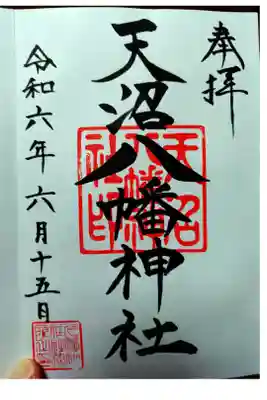 奉拝
天沼八幡神社
天沼八幡神社印
令和六年六月十五日